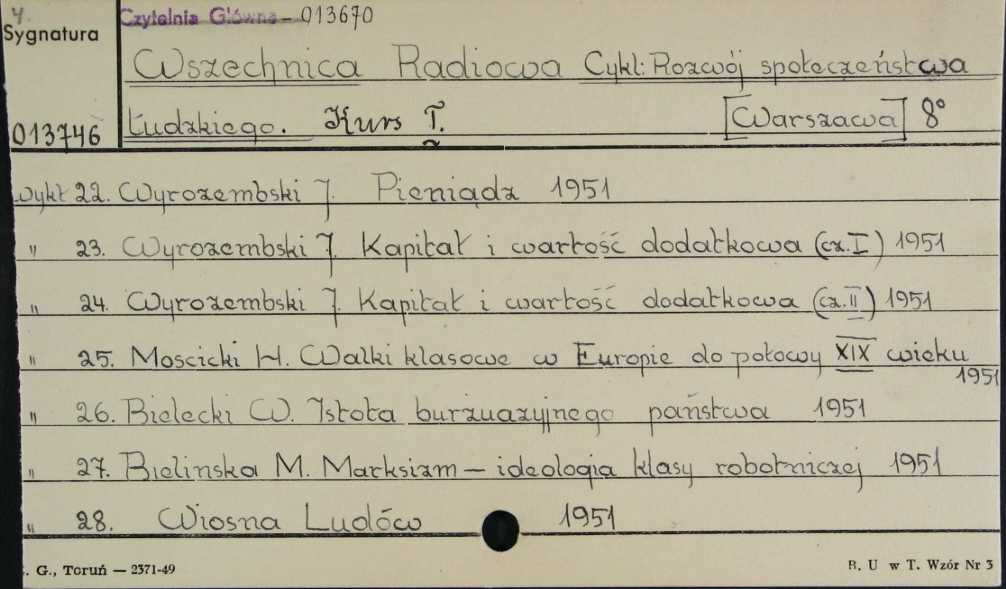 4.
Czytelnia Główna – 013670
Sygnatura
Wszechnica Radiowa Cykl: Rozwój społeczeństwa
013746 Ludzkiego. Kurs I. [Warszawa] 8°
wykł 22. Wyrozembski J. Pieniądz 1951
" 23. Wyrozembski J. Kapitał i wartość dodatkowa (cz. I) 1951
" 24. Wyrozembski J. Kapitał i wartość dodatkowa (cz. II) 1951
" 25. Moscicki H. Walki klasowe w Europie do połowy XIX wieku
1951
" 26. Bielecki W. Istota burżuazyjnego państwa 1951
" 27. Bielinska M. Marksizm – ideologia klasy robotniczej 1951
" 28. Wiosna Ludów 1951
. G., Toruń — 2371-49 B. U w T. Wzór Nr 3